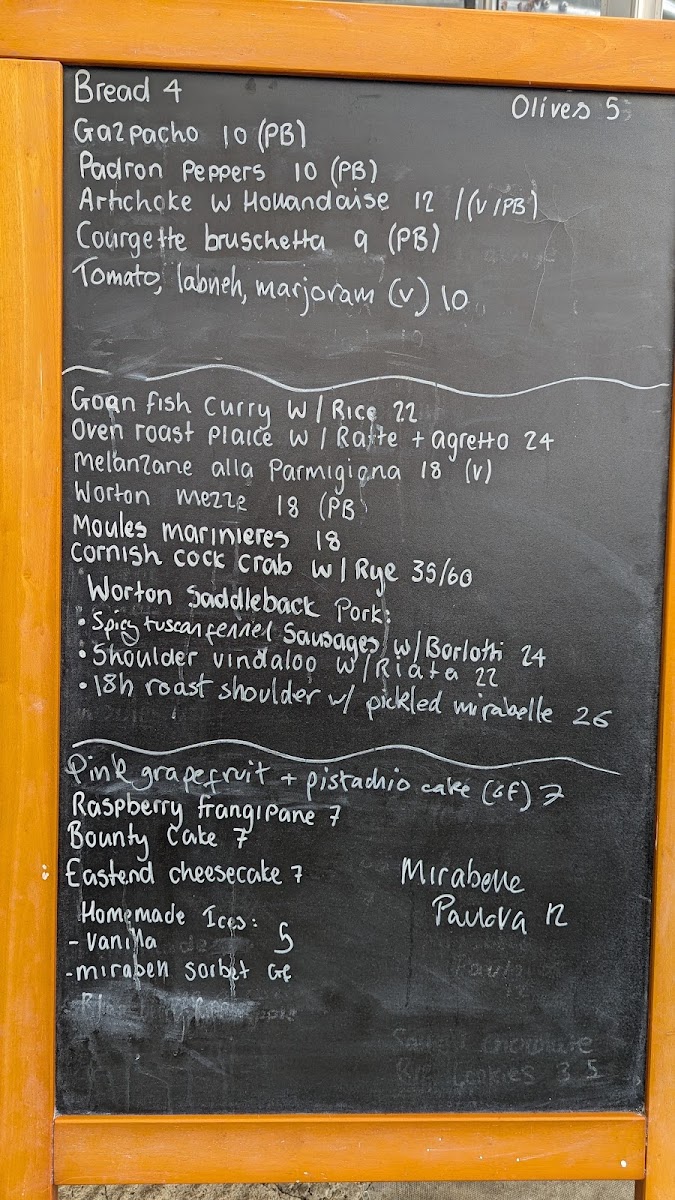 Bread 4
Olives 5
Gazpacho 10 (PB)
Padron Peppers 10 (PB)
Artichoke w Hollandaise 12 / (V/PB)
Courgette bruschetta 9 (PB)
Tomato, labneh, marjoram (V) 10
Goan fish curry w/ Rice 22
Oven roast Plaice w/ Ratte + agretto 24
Melanzane alla Parmigiana 18 (v)
Worton mezze 18 (PB
Moules marinieres 18
Cornish cock crab w/ Rye 35/60
Worton Saddleback Pork:
• Spicy tuscan fennel Sausages w/ Borlotti 24
• Shoulder vindaloo w/ Riata 22
• 18h roast shoulder w/ pickled mirabelle 26
Pink grapefruit + pistachio cake (GF) 7
Raspberry frangipane 7
Bounty Cake 7
Eastend cheesecake 7
Mirabelle
Pavlova 12
Homemade Ices:
- vanilla 5
- mirabell sorbet GF